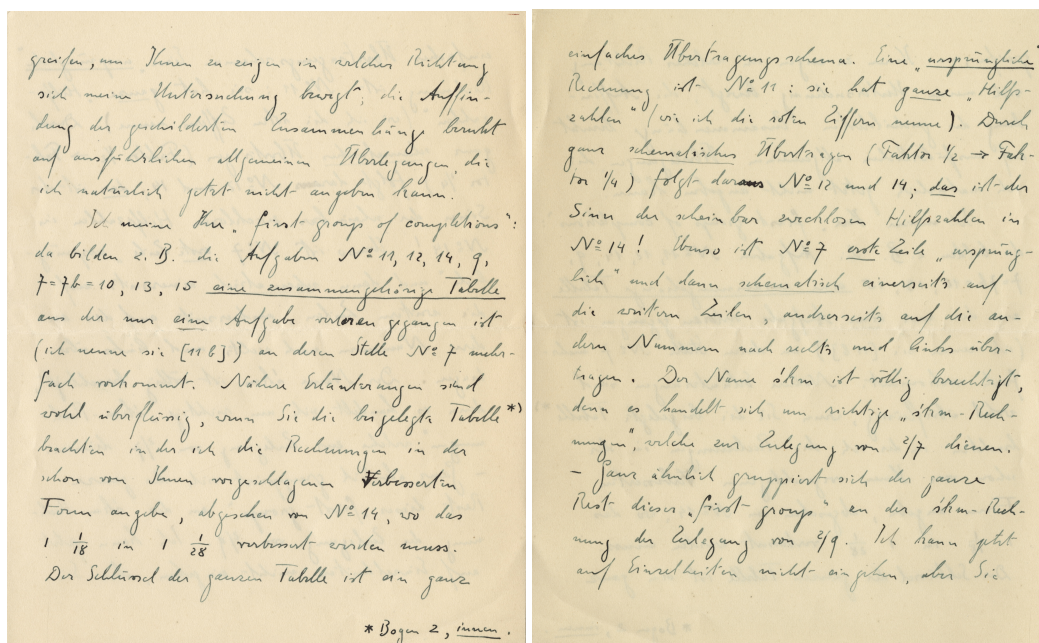 greifen, um Ihnen zu zeigen in welcher Richtung
sich meine Untersuchung bewegt; die Auffin-
dung der geschilderten Zusammenhänge beruht
auf ausführlichen allgemeinen Überlegungen, die
ich natürlich jetzt nicht angeben kann.
Ich meine Ihre „first groups of completions":
da bilden z. B. die Aufgaben No 11, 12, 14, 9,
7=7b=10, 13, 15 eine zusammengehörige Tabelle
aus der nur eine Aufgabe verloren gegangen ist
(ich nenne sie [11b]) an deren Stelle No 7 mehr-
fach vorkommt. Nähere Erläuterungen sind
wohl überflüssig, wenn Sie die beigelegte Tabelle *)
beachten in der ich die Rechnungen in der
schon von Ihnen vorgeschlagenen Verbesserten
Form angebe, abgesehen von No 14, wo das
1 1/18 in 1 1/28 verbessert werden muss.
Der Schlüssel der ganzen Tabelle ist ein ganz
* Bogen 2, innen.
einfaches Übertragungsschema. Eine „ursprüngliche"
Rechnung ist No 11: sie hat ganze „Hilfs-
zahlen" (wie ich die roten Ziffern nenne). Durch
ganz schematisches Übertragen (Faktor 1/2 → Fak-
tor 1/4) folgt daraus No 12 und 14; das ist der
Sinn der scheinbar zwecklosen Hilfszahlen in
No 14! Ebenso ist No 7 erste Zeile „ursprüng-
lich" und dann schematisch einerseits auf
die weitern Zeilen, andrerseits auf die an-
dern Nummern nach rechts und links über-
tragen. Der Name śkm ist völlig berechtigt,
denn es handelt sich um richtige „śkm-Rech-
nungen", welche zur Zerlegung von 2/7 dienen.
– Ganz ähnlich gruppiert sich der ganze
Rest dieser „first groups" an der śkm-Rech-
nung der Zerlegung von 2/9. Ich kann jetzt
auf Einzelheiten nicht eingehen, aber Sie